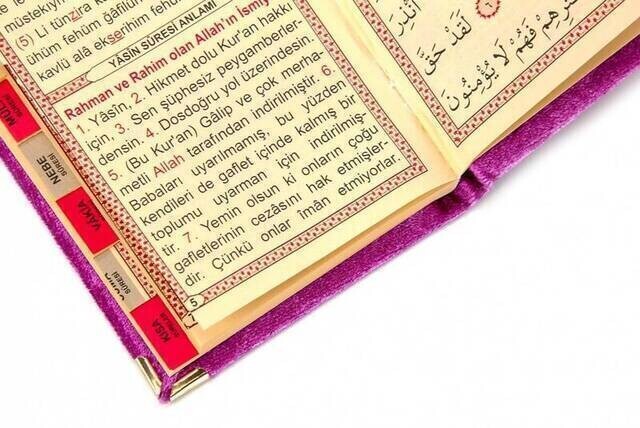 (5) Li tünzira
ühüm fehüm ğâfilûn
kavlü alâ ekserihim fehüm
YÂSİN SÛRESİ ANLAMI
Rahman ve Rahim olan Allah'ın İsmiy
1. Yâsîn, 2. Hikmet dolu Kur'an hakkı
için, 3. Sen şüphesiz peygamberler-
densin. 4. Dosdoğru yol üzerindesin.
5. (Bu Kur'an) Gâlip ve çok merha-
metli Allah tarafından indirilmiştir. 6.
Babaları uyarılmamış, bu yüzden
kendileri de gaflet içinde kalmış bir
toplumu uyarman için indirilmiş-
tir. 7. Yemin olsun ki onların çoğu
gafletlerinin cezâsını hak etmişler-
dir. Çünkü onlar îmân etmiyorlar.
5
NEBE
SÛRESİ
VAKIA
SÛRESİ
KISA
SÛRELER
لَقَدْ حَقَّ
فَهُمْ لَا يُؤْمِنُونَ